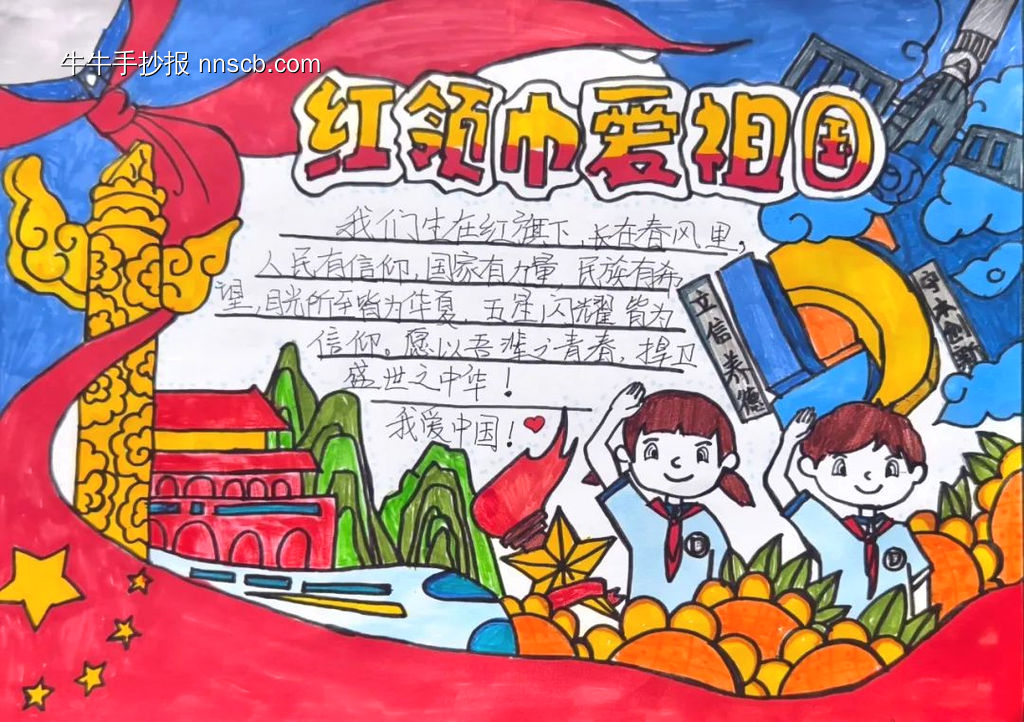 牛牛手抄报 nnscb.com
红领巾爱祖国
我们生在红旗下,长在春风里,
人民有信仰,国家有力量,民族有希
望,目光所至皆为华夏,五星闪耀皆为
信仰。愿以吾辈之青春,捍卫
盛世之中华!
我爱中国!
立信养德
守本创新